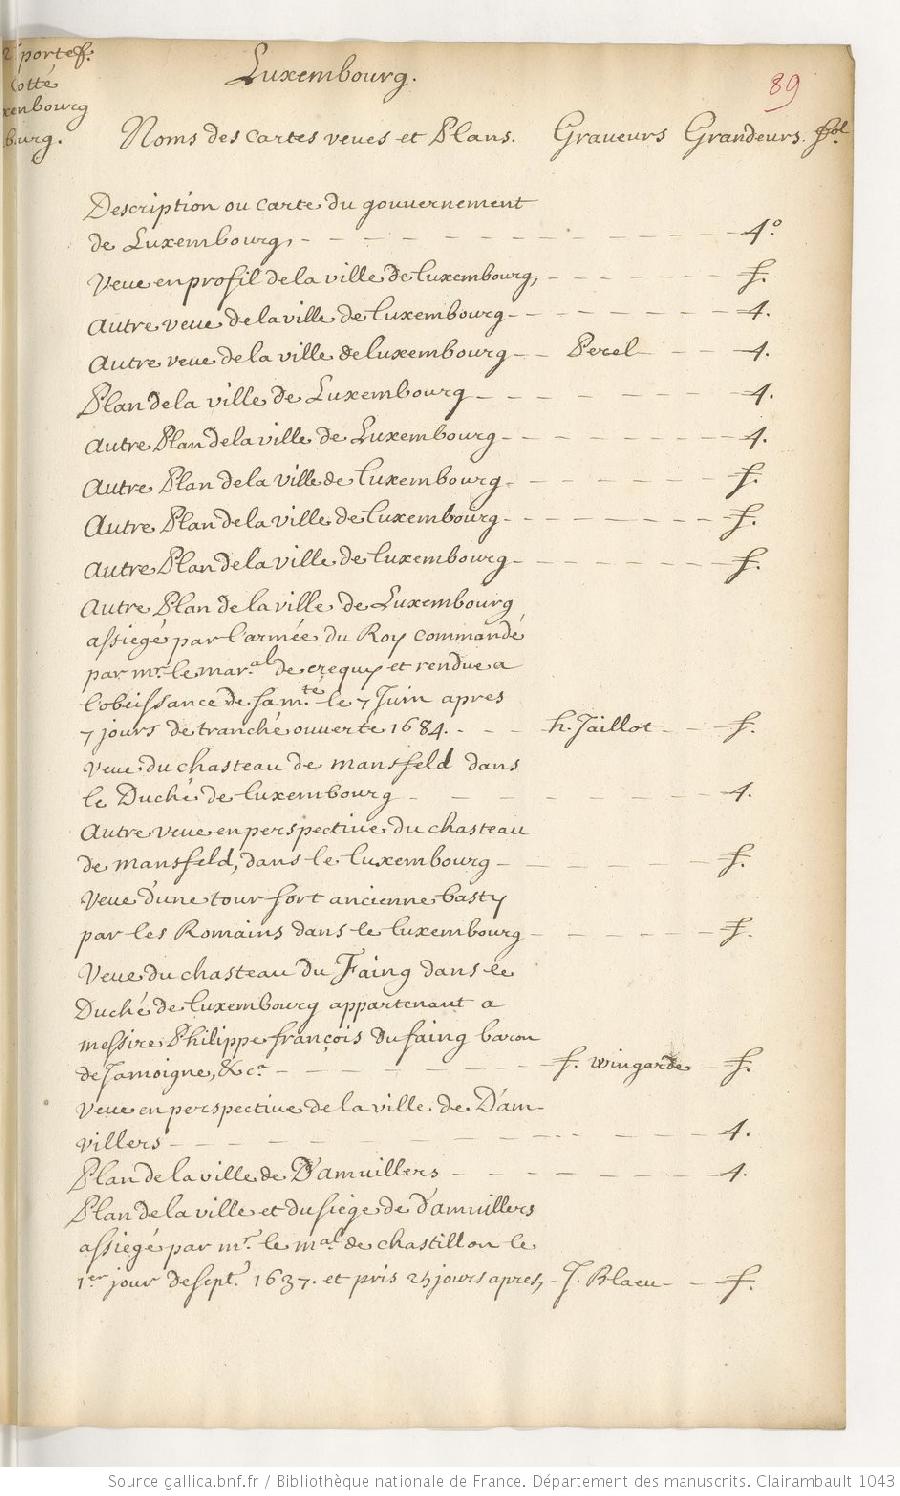 portef.
cotté
xenbourg
burg.
Luxembourg.
89
Noms des cartes veues et Plans. Graveurs Grandeurs. fol.
Description ou carte du gouvernement
de Luxembourg, 4°
Veue en profil de la ville de luxembourg, f.
Autre veue de la ville de luxembourg 4.
Autre veue de la ville de luxembourg Perel 4.
Plan de la ville de Luxembourg 4.
Autre Plan de la ville de Luxembourg 4.
Autre Plan de la ville de luxembourg f.
Autre Plan de la ville de luxembourg f.
Autre Plan de la ville de luxembourg f.
Autre Plan de la ville de Luxembourg
assiegé par l'armée du Roy commandé
par mr. le mar.al de crequy et rendue a
l'obeissance de sa m.té le 7 Juin apres
7 jours de tranché ouverte 1684. h. Jaillot f.
Veue du chasteau de mansfeld dans
le Duché de luxembourg 4.
Autre veue en perspective du chasteau
de mansfeld, dans le luxembourg f.
Veue d'une tour fort ancienne basty
par les Romains dans le luxembourg f.
Veue du chasteau du Faing dans le
Duché de luxembourg appartenant a
messire Philippe françois du faing baron
de Jamoigne, &c.a f. wingarde f.
Veue en perspective de la ville de D'am-
villers 4.
Plan de la ville de D'amvillers 4.
Plan de la ville et du siege de d'amvillers
assiegé par mr. le m.al de chastillon le
1er jour de sept.r 1637. et pris 25 jours apres, J. Blaeu f.
Source gallica.bnf.fr / Bibliothèque nationale de France. Département des manuscrits. Clairambault 1043